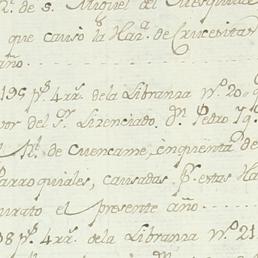 de S. Miguel del Mesquital
que causó la Haz.ª de Cruces
año
195 p.s 4 rr.s de la Libranza N.º 20
vor del S.r Licenciado D.n Pedro
de Cuencamé, cinquenta de
Parroquiales, causadas p.r estas Ha
urato el presente año
8 p.s 4 rr.s de la Libranza N.º 21